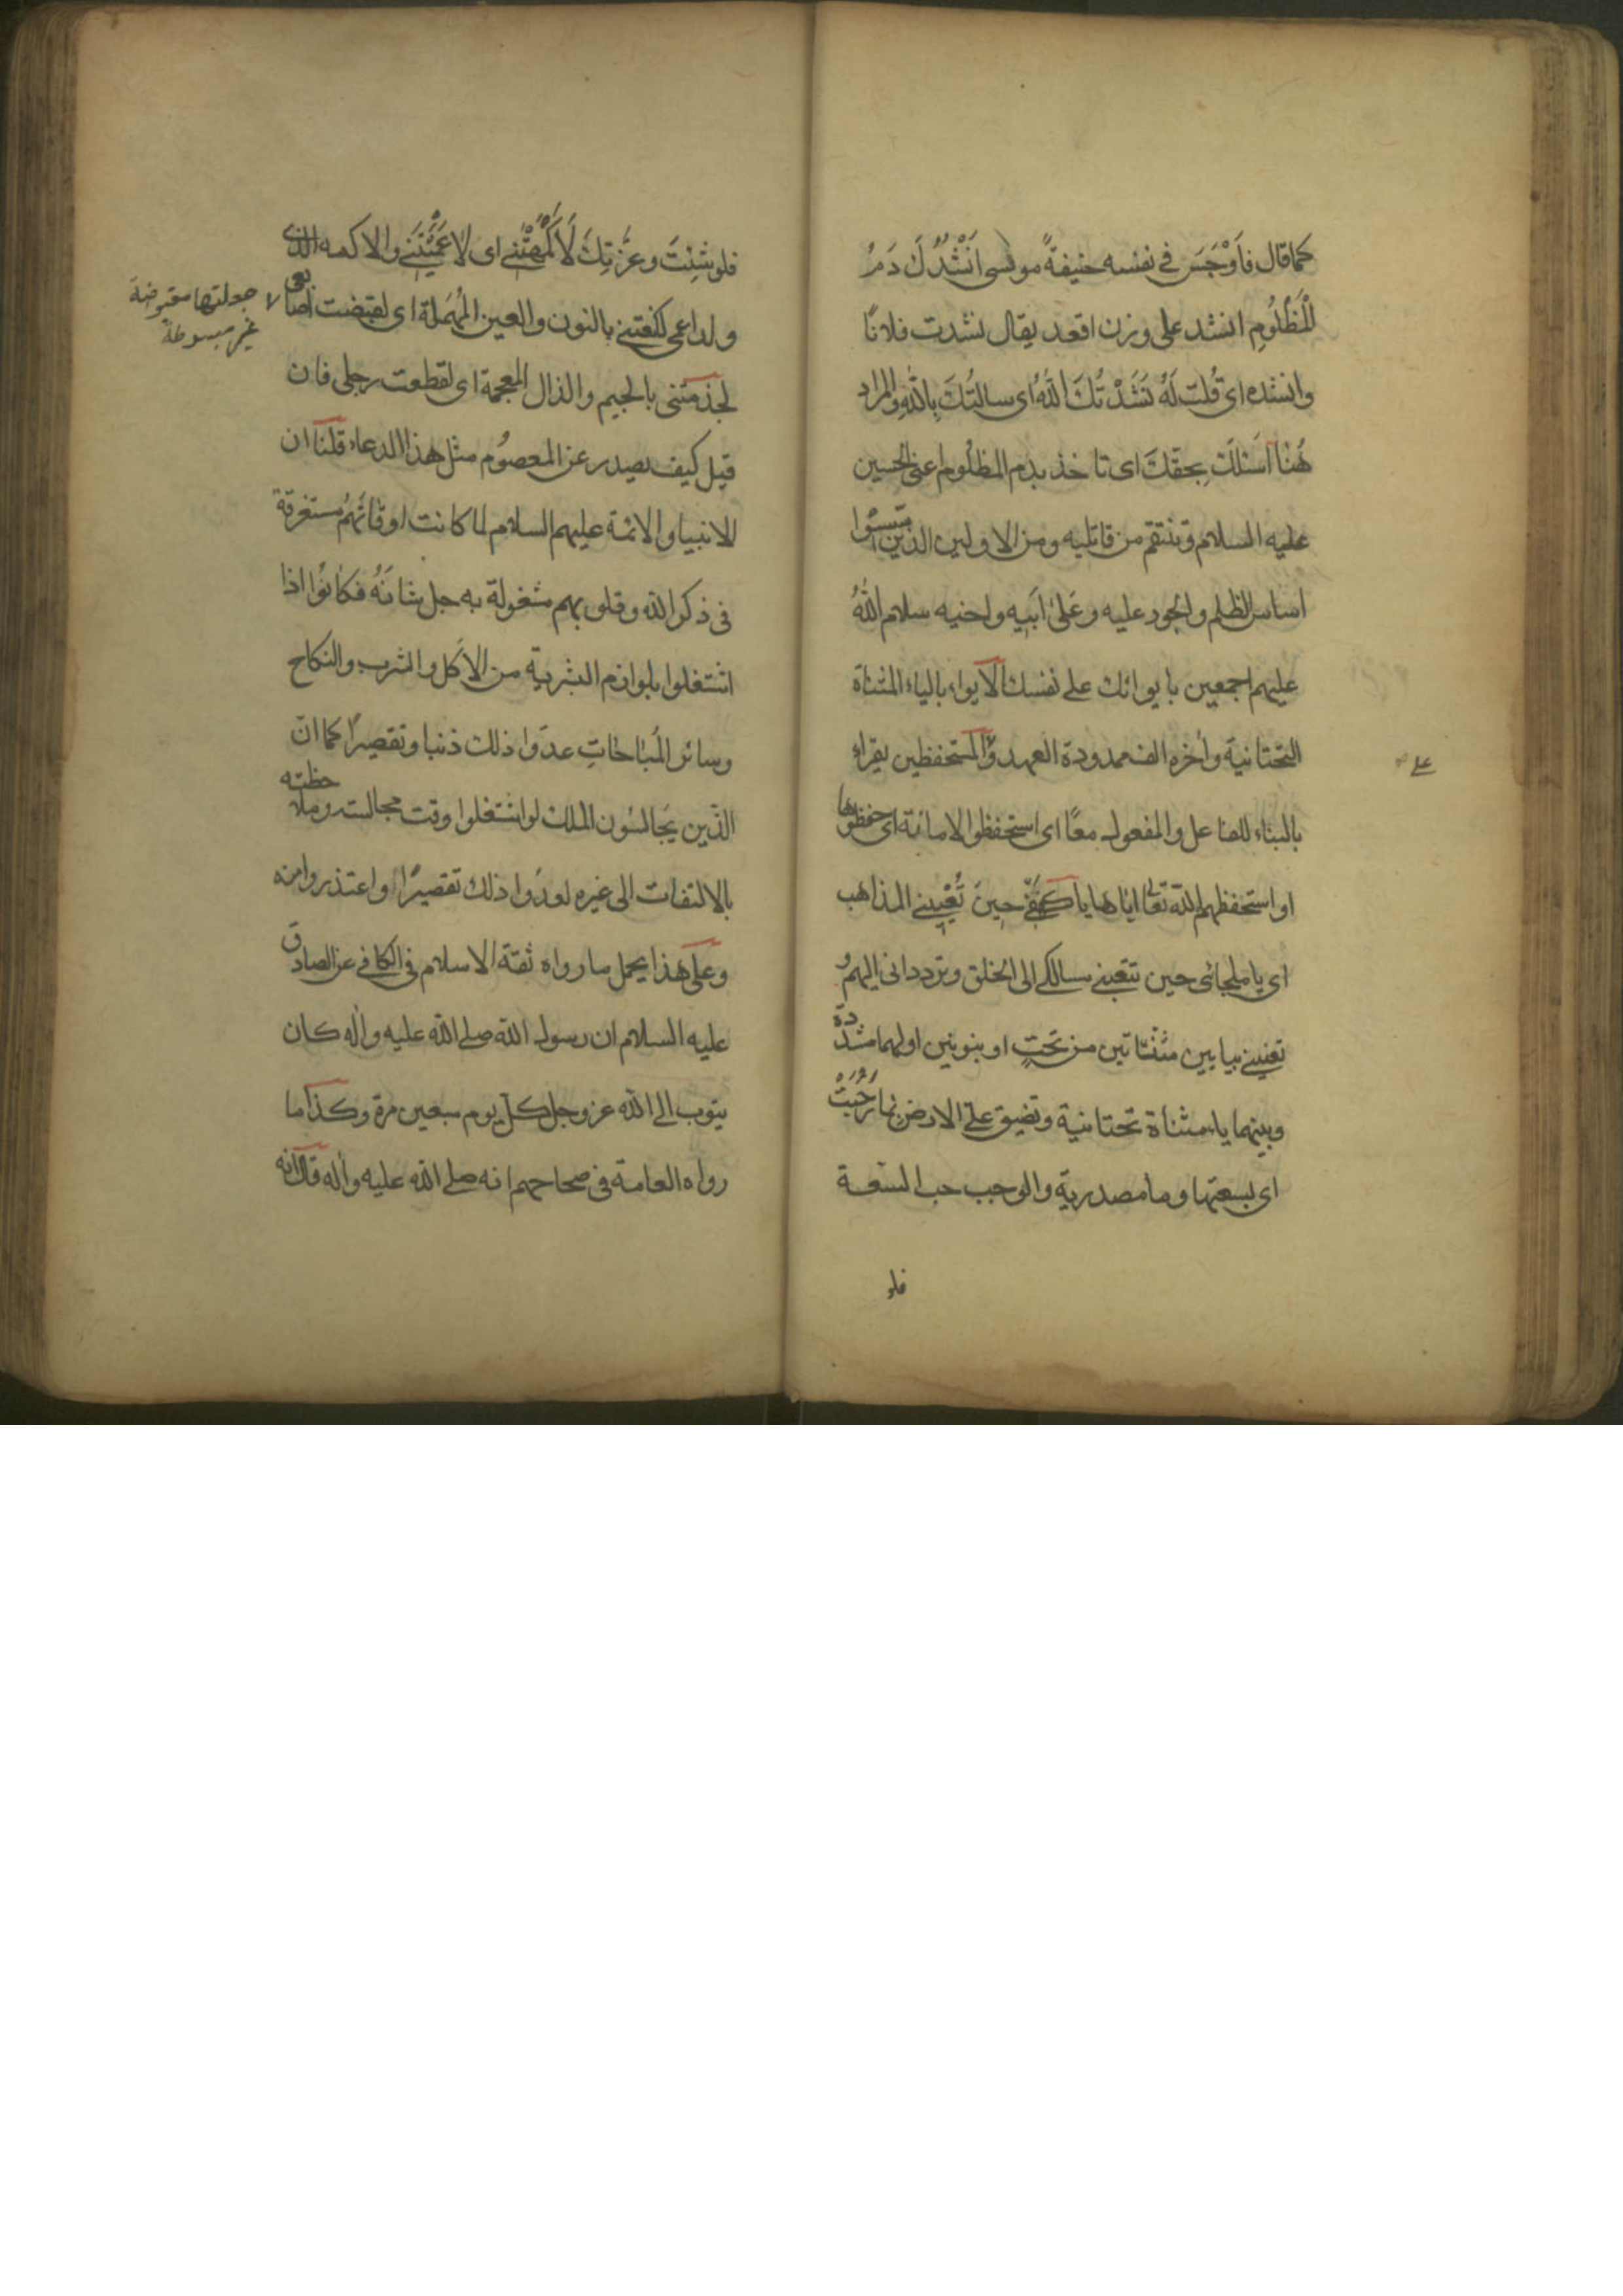 كما قال فَاَوْجَسَ في نفسه خيفةً موسى اَنْشُدُكَ دَمَ
الْمَظْلُومِ انشد على وزن اقعد يقال نشدت فلانًا
وانشده اى قُلت لَهُ نَشَدْتُكَ اللّهُ اى سالتُكَ بِاللّهِ والمراد
هُنا اَسئلك بِحقّكَ اى تاخذ بدم المظلُوم اعنى الحسين
عليه السلام وتنتقم من قاتليه ومن الاولين الذين اسّسُوا
اساس الظلم والجور عليه وعَلىٰ اَبيه واخيه سلام اللّهُ
عليهم اجمعين بايوائك على نفسك الايواء بالياء المثناة
التحتانية واٰخره الف ممدودة العهد والمستحفظين يقراء
على
بالبناء للفاعل والمفعول معًا اى استحفظوا الامانة اى حفظوها
او استحفظهم اللّه تعالى اياها يا كَهْفى حِينَ تُعْيينى المذاهب
اى يا ملجائى حين تتعبنى مسالكى الى الخلق وتردداتى اليهم و
تعيينى بيايين مثنّاتين من تحتٍ او بنونين اولهما مشدّدة
وبينهما ياء مثناة تحتانية وتضيق علىّ الارض بما رَحُبَتْ
اى بسعتها وما مصدرية والرحب السّعة
فلو
فلو شِئتَ وعزّتِكَ لَاَكْمَهْتَنى اى لاعَمَيْتَنى والاكمه الذى
ولد اعمى لكنعتنى بالنون والعين المُهملة اى لقبضت اصابعى
جعلتها مقبوضة
غير مبسوطة
لجذمتنى بالجيم والذال المعجمة اى لقطعت رجلى فان
قيل كيف يصدر عن المعصُوم مثل هذا الدعاء قلنا ان
الانبياء والائمة عليهم السلام لما كانت اوقاتُهُم مستغرقة
فى ذكر اللّه وقلوبهم مشغولة به جل شانَهُ فكانُوا اذا
اشتغلوا بلوازم البشرية من الاَكل والشرب والنكاح
وسائر المُباحاتِ عدّوا ذلك ذنبا وتقصيرًا كما انّ
الذّين يَجالسُون الملك لو اشتغلوا وقت مجالسته وملاحظته
بالالتفات الى غيره لعدّوا ذلك تقصيرًا واعتذروا منه
وعلى هذا يحمل ما رواه ثقة الاسلام فى الكافى عن الصادق
عليه السلام ان رسول اللّه صلى اللّه عليه واٰله كان
يتوب الى اللّه عز وجل كلّ يوم سبعين مرة وكذا ما
رواه العامة فى صحاحهم انه صلى اللّه عليه واٰله قال انه